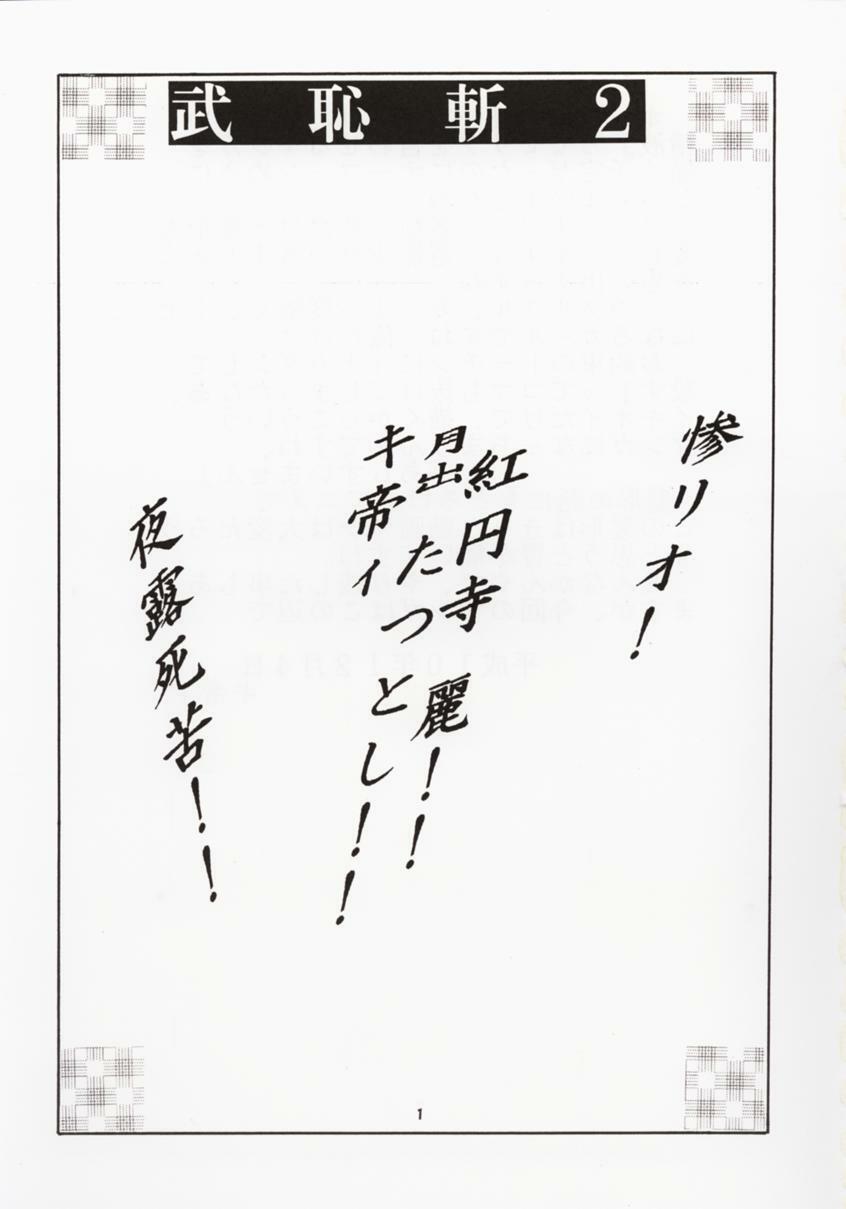 武恥斬2
惨リオ！
紅円寺 麗！！
月出たつとし！！
キ帝ィ
夜露死苦！！
1